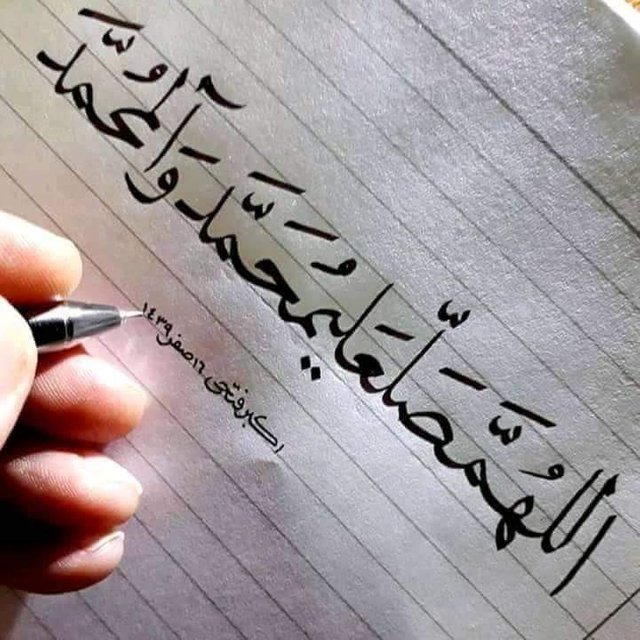 اللهُمَّ صَلِّ عَلی مُحَمَّدَ وَآلِ مُحَمَّد
اکبر فتحی ١٦ صفر ١٤٣٩